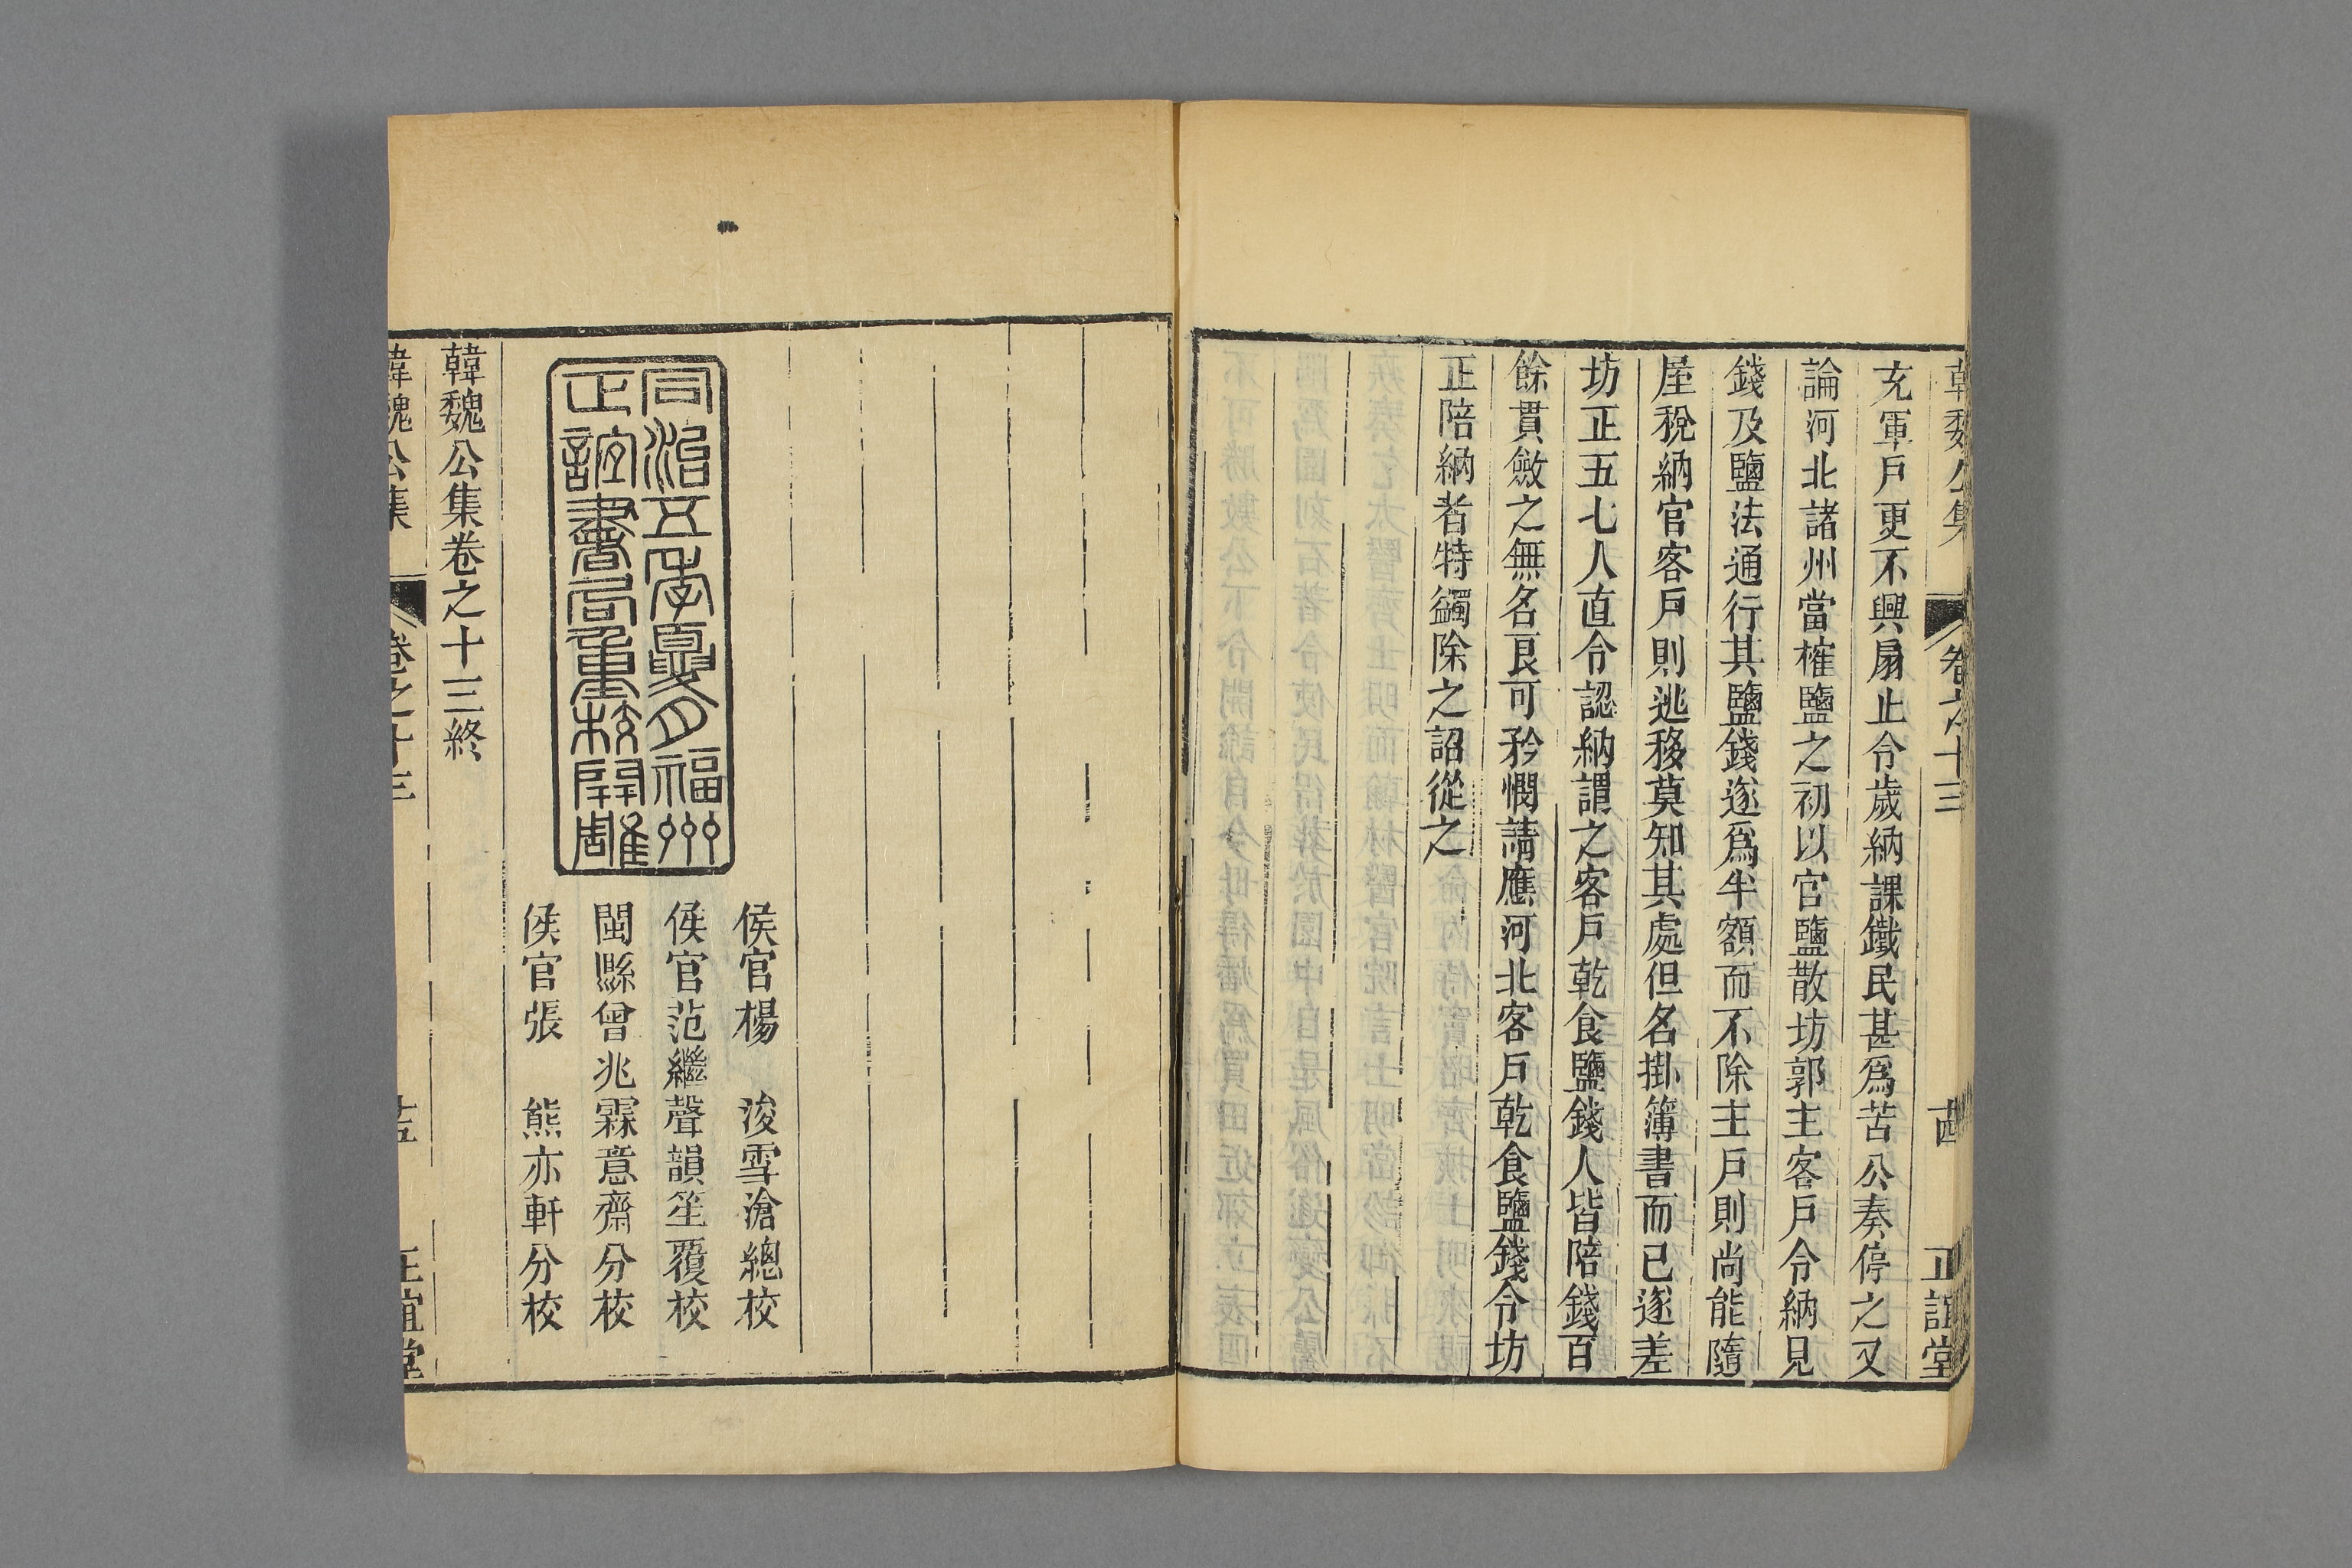 韓魏公集 卷之十三 古 正誼堂
充軍戶更不興扇止令歲納課鐵民甚爲苦公奏停之又
論河北諸州當榷鹽之初以官鹽散坊郭主客戶令納見
錢及鹽法通行其鹽錢遂爲半額而不除主戶則尚能隨
屋稅納官客戶則逃移莫知其處但名掛簿書而已遂差
坊正五七人直令認納謂之客戶乾食鹽錢人皆陪錢百
餘貫斂之無名艮可矜憫請應河北客戶乾食鹽錢令坊
正陪納者特蠲除之詔從之
侯官楊 浚雪滄總校
侯官范繼聲韻笙覆校
閩縣曾兆霖意齋分校
侯官張 熊亦軒分校
同治五年夏月福州
正誼書局重校開雕
韓魏公集卷之十三終
韓魏公集 卷之十三 正誼堂